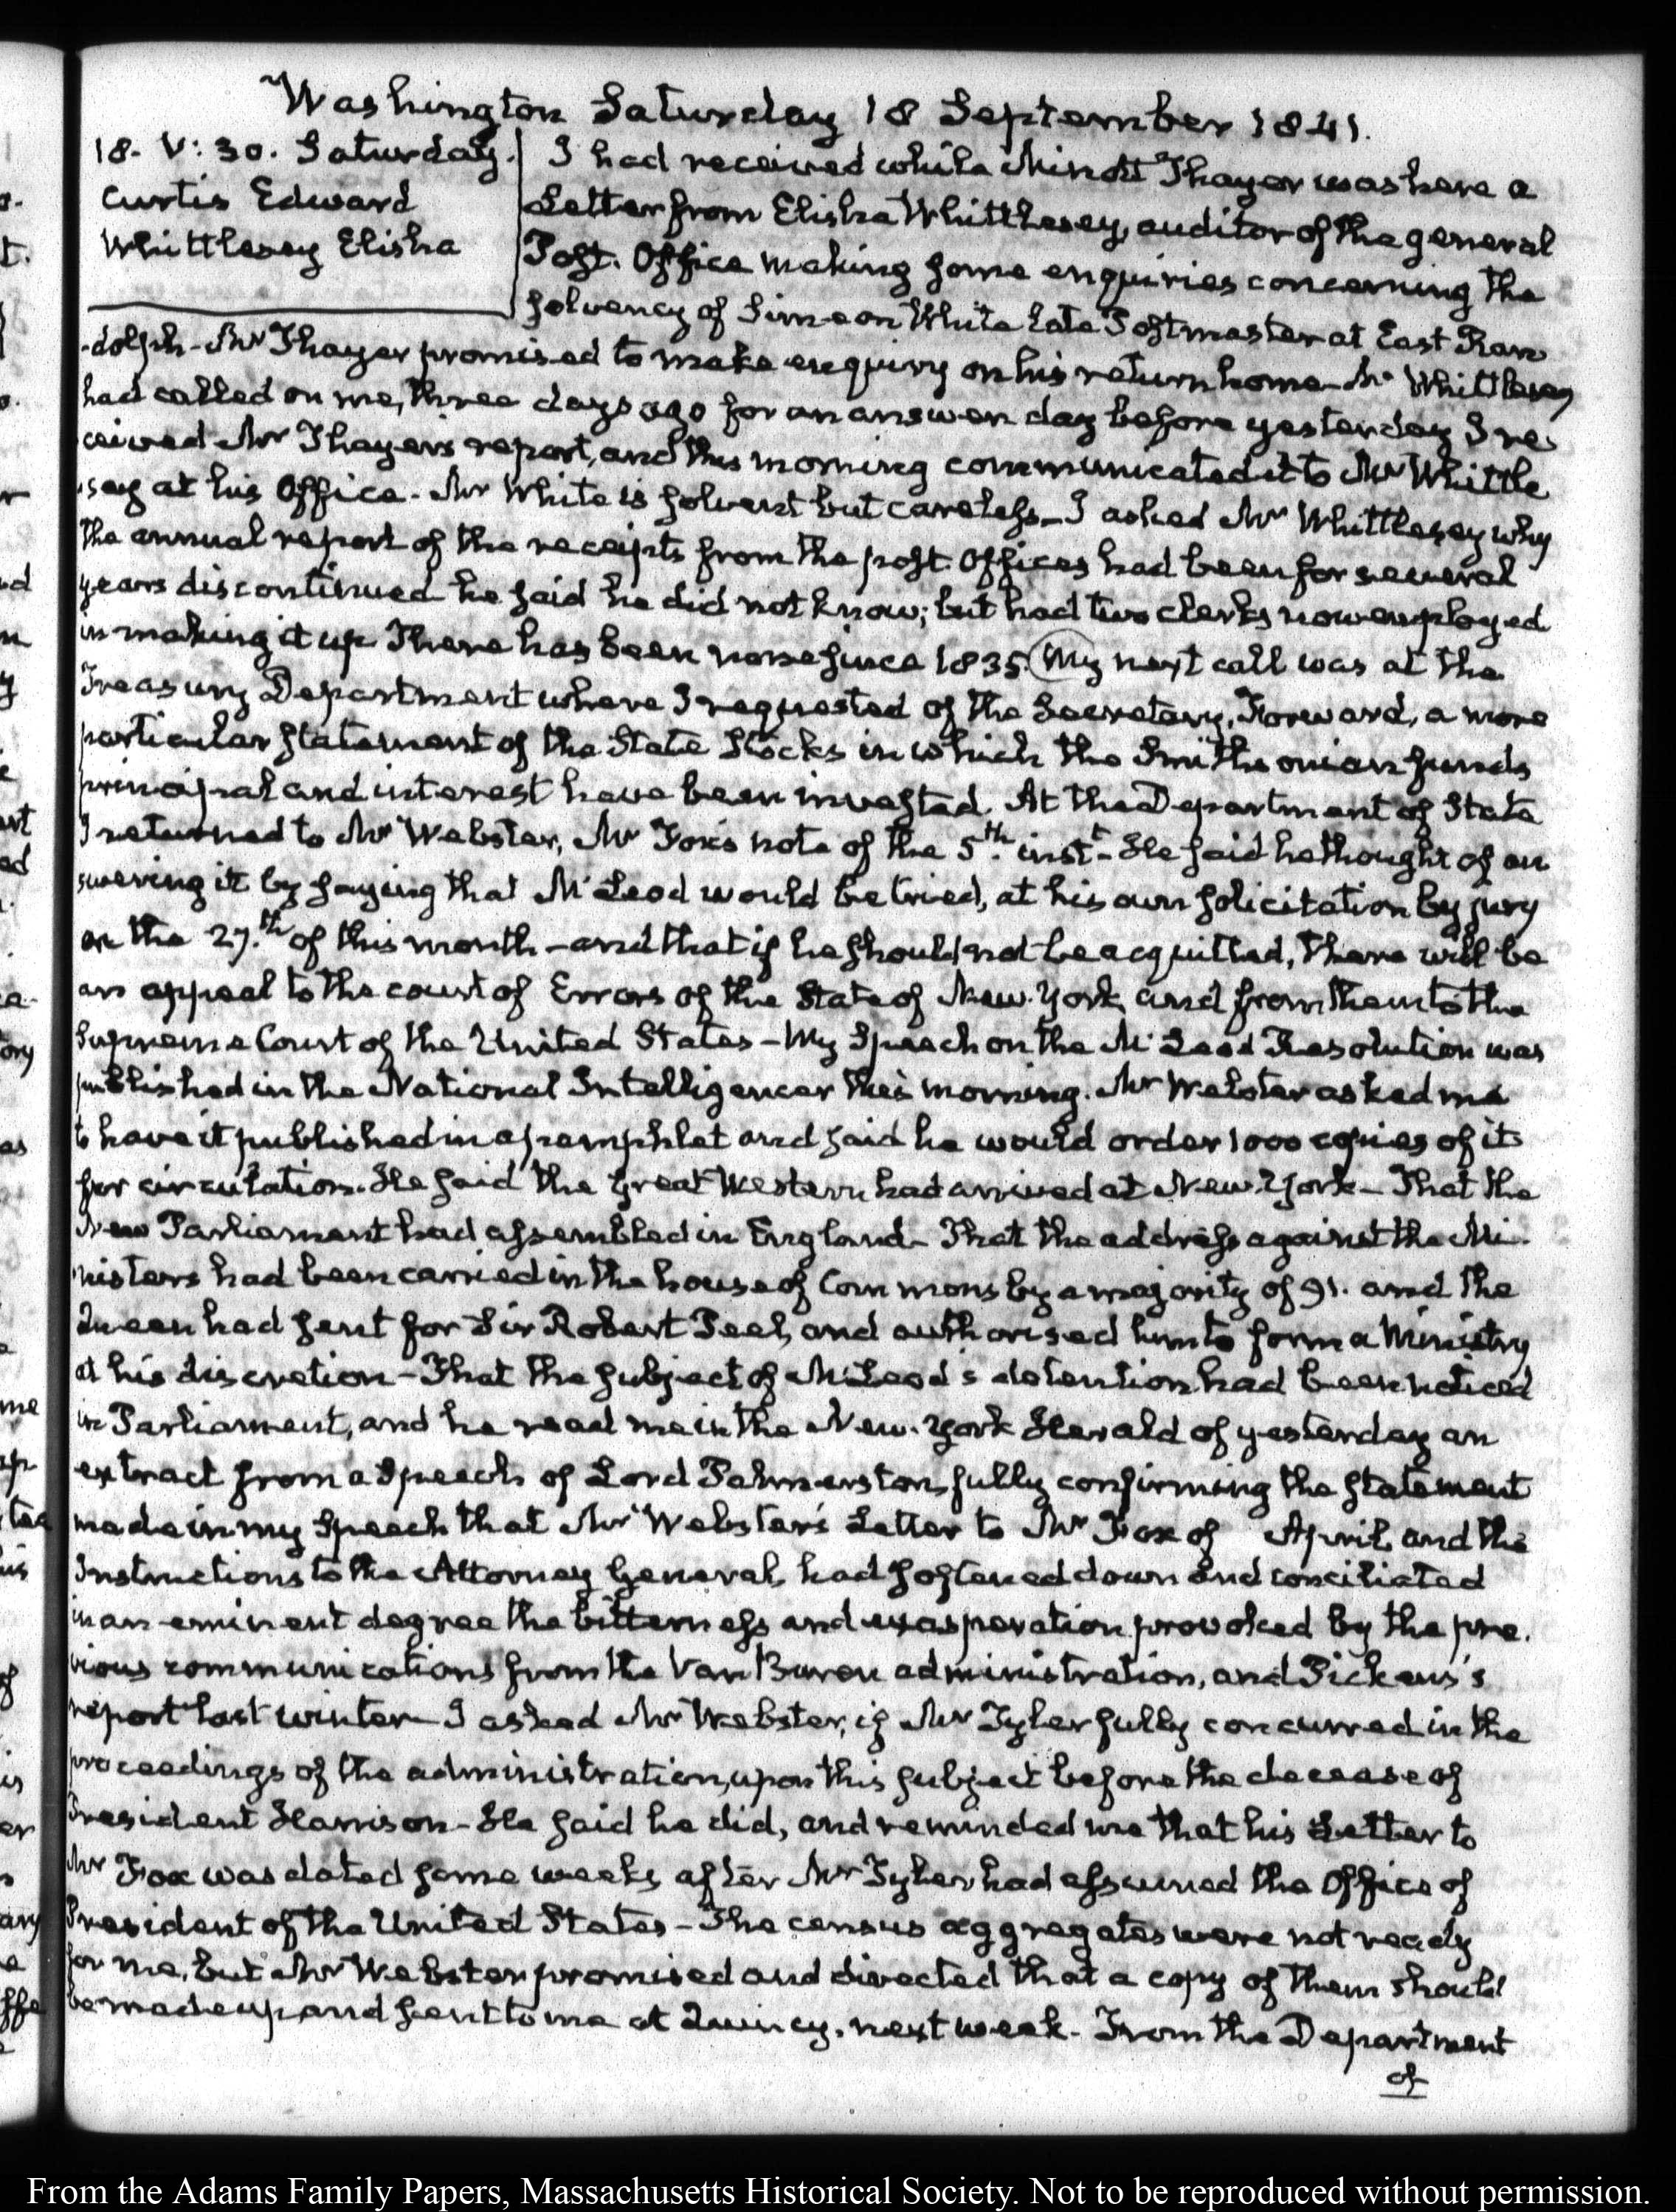 Washington Saturday 18 September 1841.
18. V: 30. Saturday.
Curtis Edward
Whittlesey Elisha
I had received while Minott Thayer was here a
Letter from Elisha Whittlesey, auditor of the general
Post. Office making some enquiries concerning the
solvency of Simeon White late Postmaster at East Ran
-dolph- Mr Thayer promised to make enquiry on his return home- Mr Whittlesey
had called on me, three days ago for an answer day before yesterday I re-
ceived Mr Thayer's report, and this morning communicated it to Mr Whittle
-sey at his Office. Mr White is solvent but careless- I asked Mr Whittlesey why
the annual report of the receipts from the post. Offices had been for several
years discontinued he said he did not know; but had two clerks now employed
in making it up There has been none since 1835. My next call was at the
Treasury Department where I requested of the Secretary, Forward, a more
particular statement of the State Stocks in which the Smithsonian funds
principal and interest have been invested. At the Department of State
I returned to Mr Webster, Mr Fox's note of the 5th. instt- He said he thought of an
swering it by saying that McLeod would be tried, at his own solicitation by jury
on the 27.th of this month- and that if he should not be acquitted, there will be
an appeal to the court of Errors of the State of New. York, and from them to the
Supreme Court of the United States- My Speech on the McLeod Resolution was
published in the National Intelligencer this morning. Mr Webster asked me
to have it published in a pamphlet and said he would order 1000 copies of it
for circulation. He said the Great Western had arrived at New. York- That the
New Parliament had assembled in England- That the address against the Mi-
nisters had been carried in the house of Commons by a majority of 91. and the
Queen had sent for Sir Robert Peel, and authorised him to form a Ministry
at his discretion- That the subject of McLeod's detention had been noticed
in Parliament, and he read me in the New. York Herald of yesterday an
extract from a Speech of Lord Palmerston, fully confirming the statement
made in my Speech that Mr Webster's Letter to Mr Fox of April, and the
Instructions to the Attorney General, had softened down and conciliated
in an eminent degree the bitterness and exasperation provoked by the pre-
vious communications from the Van Buren administration, and Pickens's
report last winter- I asked Mr Webster, if Mr Tyler fully concurred in the
proceedings of the administration, upon this subject before the decease of
President Harrison- He said he did, and reminded me that his Letter to
Mr Fox was dated some weeks after Mr Tyler had assumed the Office of
President of the United States- The census aggregates were not ready
for me, but Mr Webster promised and directed that a copy of them should
be made up and sent to me at Quincy, next week- From the Department
of
From the Adams Family Papers, Massachusetts Historical Society. Not to be reproduced without permission.